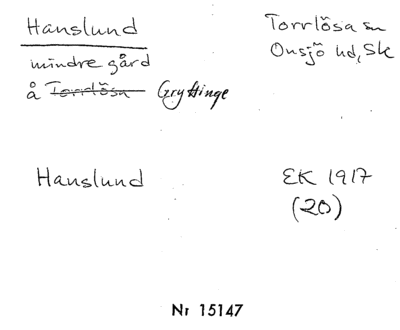 Hanslund
Torrlösa sn
Onsjö hd, Sk
mindre gård
å Torrlösa Gryttinge
Hanslund
EK 1917
(20)
Nr 15147